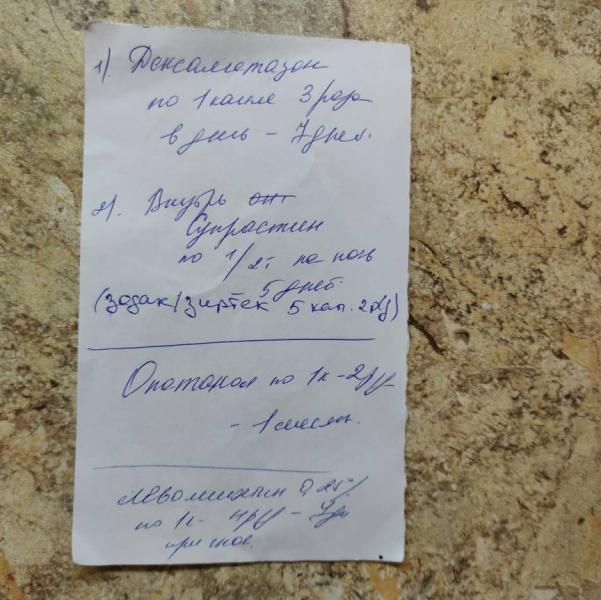 1). Дексаметазон
по 1 капле 3 раза
в день – 7 дней.
2). Внутрь
Супрастин
по 1/2т на ночь
5 дней.
(Зодак/Зиртек 5 кап. 2р/д)
Опатанол по 1к – 2р/д
– 1 месяц.
Левомицетин 0,25%
по 1к – 4р/д – 7дн
при гное.